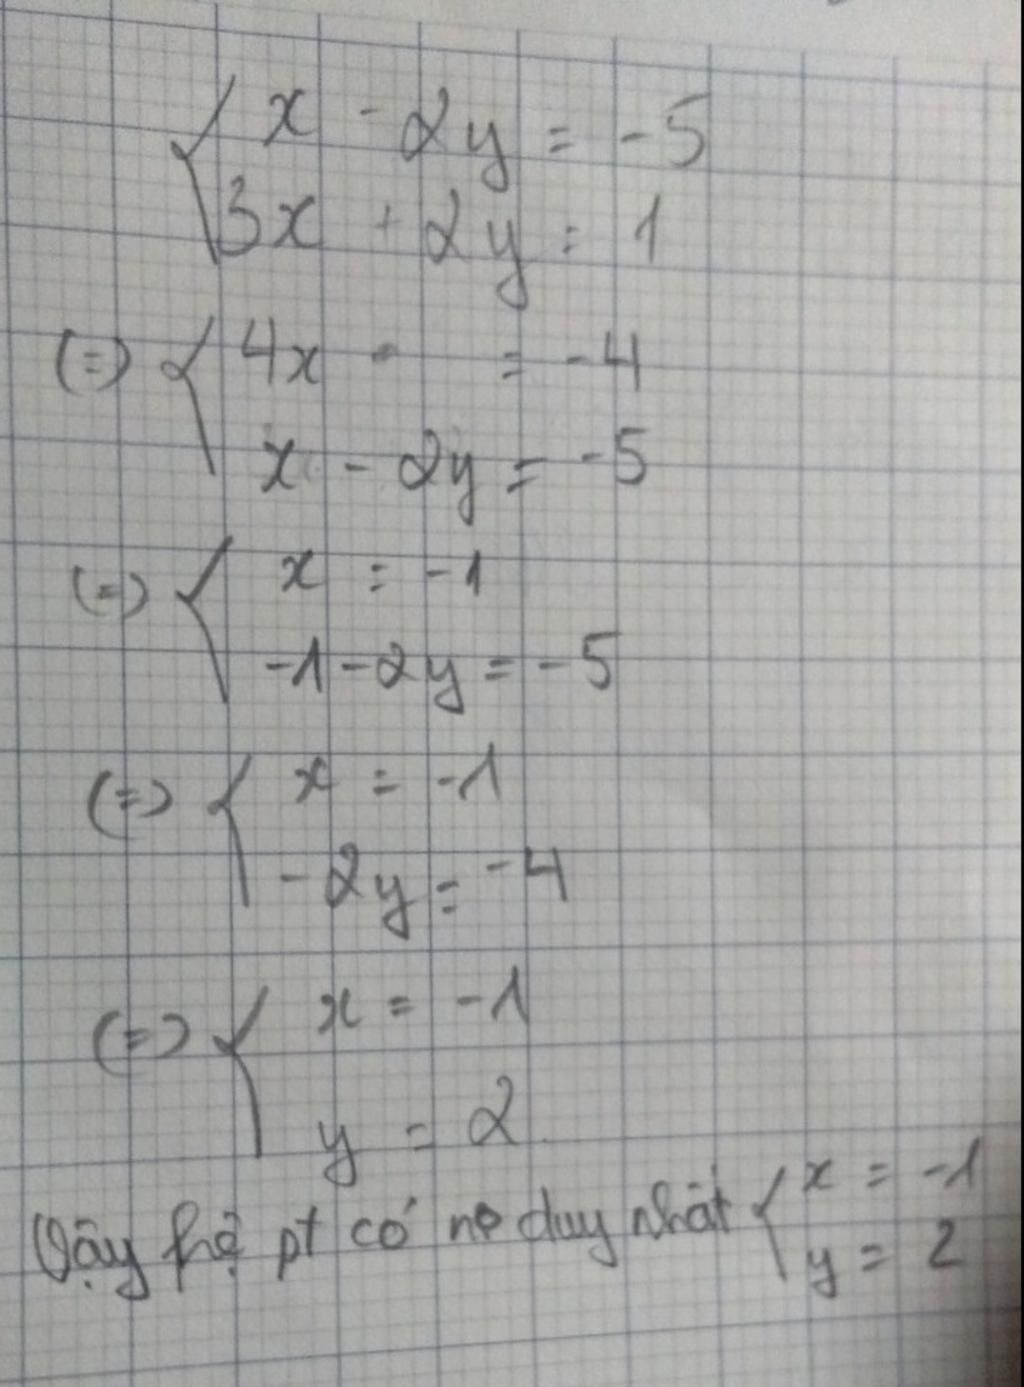 x - 2y = -5
3x + 2y = 1
(=) 4x - = -4
x - 2y = -5
(=) x = -1
-1 - 2y = -5
(=) x = -1
-2y = -4
(=) x = -1
y = 2
Vậy hệ pt có no duy nhất { x = -1
y = 2